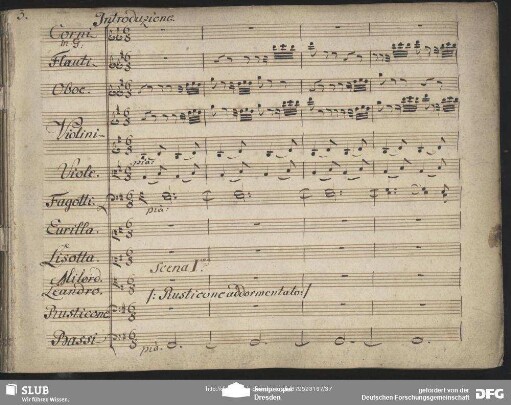 3.
Introduzione.
Corni
in G.
Flauti.
Oboe.
Violini
Viole.
pia:
Fagotti.
pia:
Eurilla.
e
Lisotta.
Scena I.
Milord.
Leandro.
/: Rusticone addormentato :/
Rusticone
Bassi
pia.
SLUB
Wir führen Wissen.
Dresden
gefördert von der
Deutschen Forschungsgemeinschaft
DFG